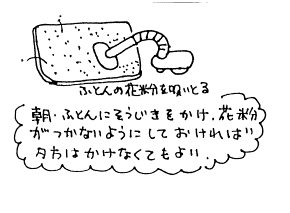 ふとんの花粉を吸いとる
朝・ふとんにそうじきをかけ、花粉
がつかないようにしておければ
夕方はかけなくてもよい.